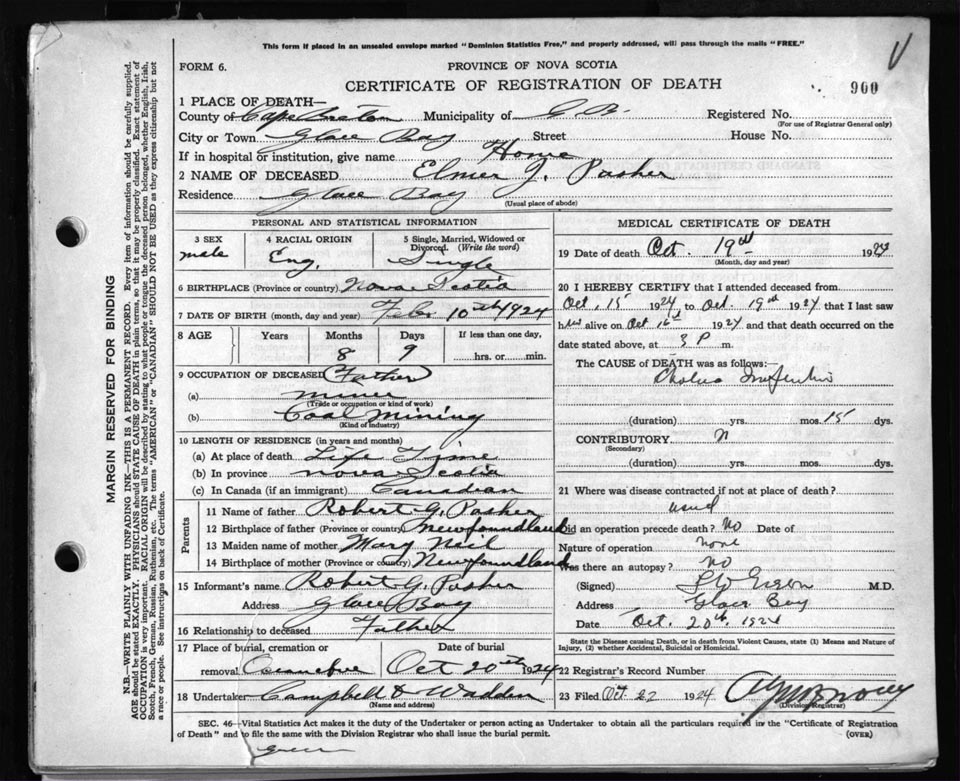 This form if placed in an unsealed envelope marked "Dominion Statistics Free," and properly addressed, will pass through the mails "FREE."
FORM 6.
PROVINCE OF NOVA SCOTIA
CERTIFICATE OF REGISTRATION OF DEATH
900
1 PLACE OF DEATH—
County of Cape Breton Municipality of C B Registered No.
(For use of Registrar General only)
City or Town Glace Bay Street House No.
If in hospital or institution, give name Home
2 NAME OF DECEASED Elmer J. Pasher
Residence Glace Bay
(Usual place of abode)
PERSONAL AND STATISTICAL INFORMATION
3 SEX male
4 RACIAL ORIGIN Eng.
5 Single, Married, Widowed or Divorced. (Write the word) Single
6 BIRTHPLACE (Province or country) Nova Scotia
7 DATE OF BIRTH (month, day and year) Feb. 10th 1924
8 AGE Years Months Days If less than one day,
8 9 hrs. or min.
9 OCCUPATION OF DECEASED Father
(a) miner
(Trade or occupation or kind of work)
(b) Coal Mining
(Kind of industry)
10 LENGTH OF RESIDENCE (in years and months)
(a) At place of death Life Time
(b) In province Nova Scotia
(c) In Canada (if an immigrant) Canadian
Parents
11 Name of father Robert G. Pasher
12 Birthplace of father (Province or country) Newfoundland
13 Maiden name of mother Mary Neil
14 Birthplace of mother (Province or country) Newfoundland
15 Informant's name Robert G. Pasher
Address Glace Bay
16 Relationship to deceased Father
17 Place of burial, cremation or removal Date of burial
Oct 20th 1924
18 Undertaker Campbell & Wadden
(Name and address)
MEDICAL CERTIFICATE OF DEATH
19 Date of death Oct. 19th 1924
(Month, day and year)
20 I HEREBY CERTIFY that I attended deceased from
Oct, 15 1924 to Oct. 19th 1924 that I last saw
him alive on Oct 16th 1924 and that death occurred on the
date stated above, at 3 P m.
The CAUSE of DEATH was as follows:—
Cholera Infantum
(duration) yrs. mos. 15 dys.
CONTRIBUTORY. N
(Secondary)
(duration) yrs. mos. dys.
21 Where was disease contracted if not at place of death?
Did an operation precede death? No Date of
Nature of operation none
Was there an autopsy? No
(Signed) M.D.
Address Glace Bay
Date Oct. 20th, 1924
State the Disease causing Death, or in death from Violent Causes, state (1) Means and Nature of Injury, (2) whether Accidental, Suicidal or Homicidal.
22 Registrar's Record Number
23 Filed Oct 22 1924
(Division Registrar)
SEC. 46—Vital Statistics Act makes it the duty of the Undertaker or person acting as Undertaker to obtain all the particulars required in the "Certificate of Registration
of Death" and to file the same with the Division Registrar who shall issue the burial permit.
(OVER)
MARGIN RESERVED FOR BINDING
N.B.—WRITE PLAINLY WITH UNFADING INK—THIS IS A PERMANENT RECORD. Every item of information should be carefully supplied.
AGE should be stated EXACTLY. PHYSICIANS should STATE CAUSE OF DEATH in plain terms, so that it may be properly classified. Exact statement of
OCCUPATION is very important. RACIAL ORIGIN will be described by stating to what people or tongue the deceased person belonged, whether English, Irish,
Scotch, French, German, Russian, Ruthenian, etc. The terms "AMERICAN" or "CANADIAN" SHOULD NOT BE USED as they express citizenship but not
a race or people. See instructions on back of Certificate.